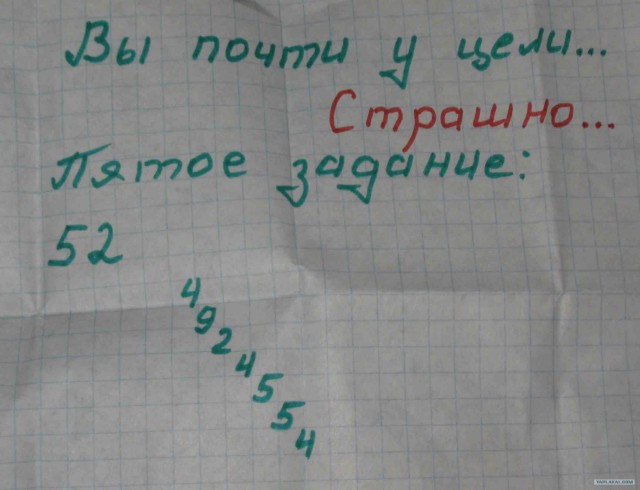 Вы почти у цели...
Страшно...
Пятое задание:
52
4
9
2
4
5
5
4